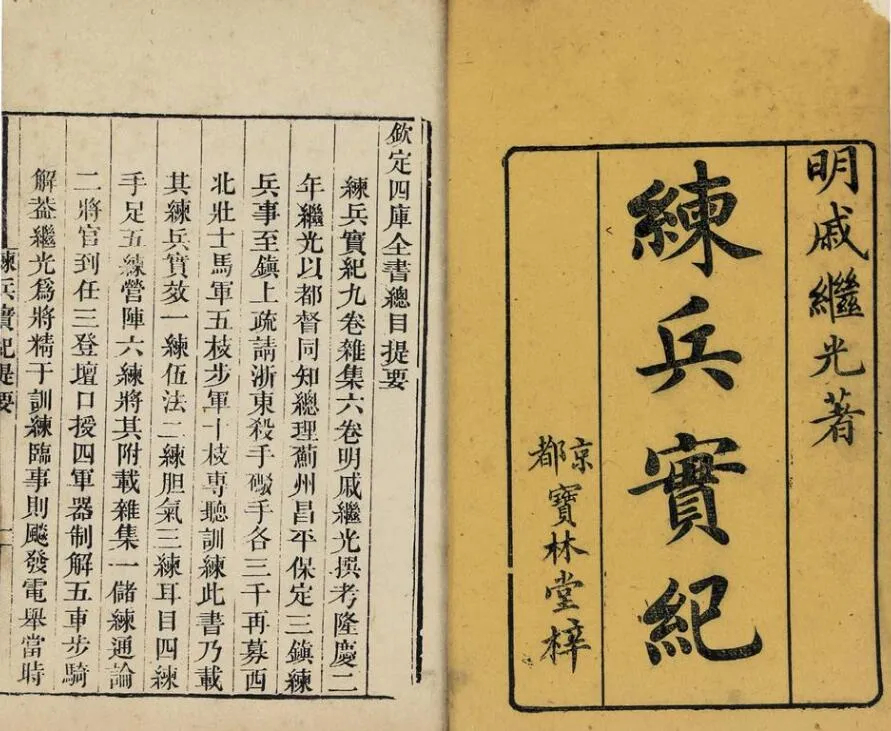 明戚繼光著
練兵實紀
京都寶林堂梓
欽定四庫全書總目提要
練兵實紀九卷雜集六卷明戚繼光撰考隆慶二
年繼光以都督同知總理薊州昌平保定三鎮練
兵事至鎮上疏請浙東殺手礮手各三千再募西
北壯士馬軍五枝步軍十枝專聽訓練此書乃載
其練兵實效一練伍法二練胆氣三練耳目四練
手足五練營陣六練將其附載雜集一儲練通論
二將官到任三登壇口授四軍器制解五車步騎
解葢繼光爲將精于訓練臨事則飚發電舉當時
練兵實紀提要
一